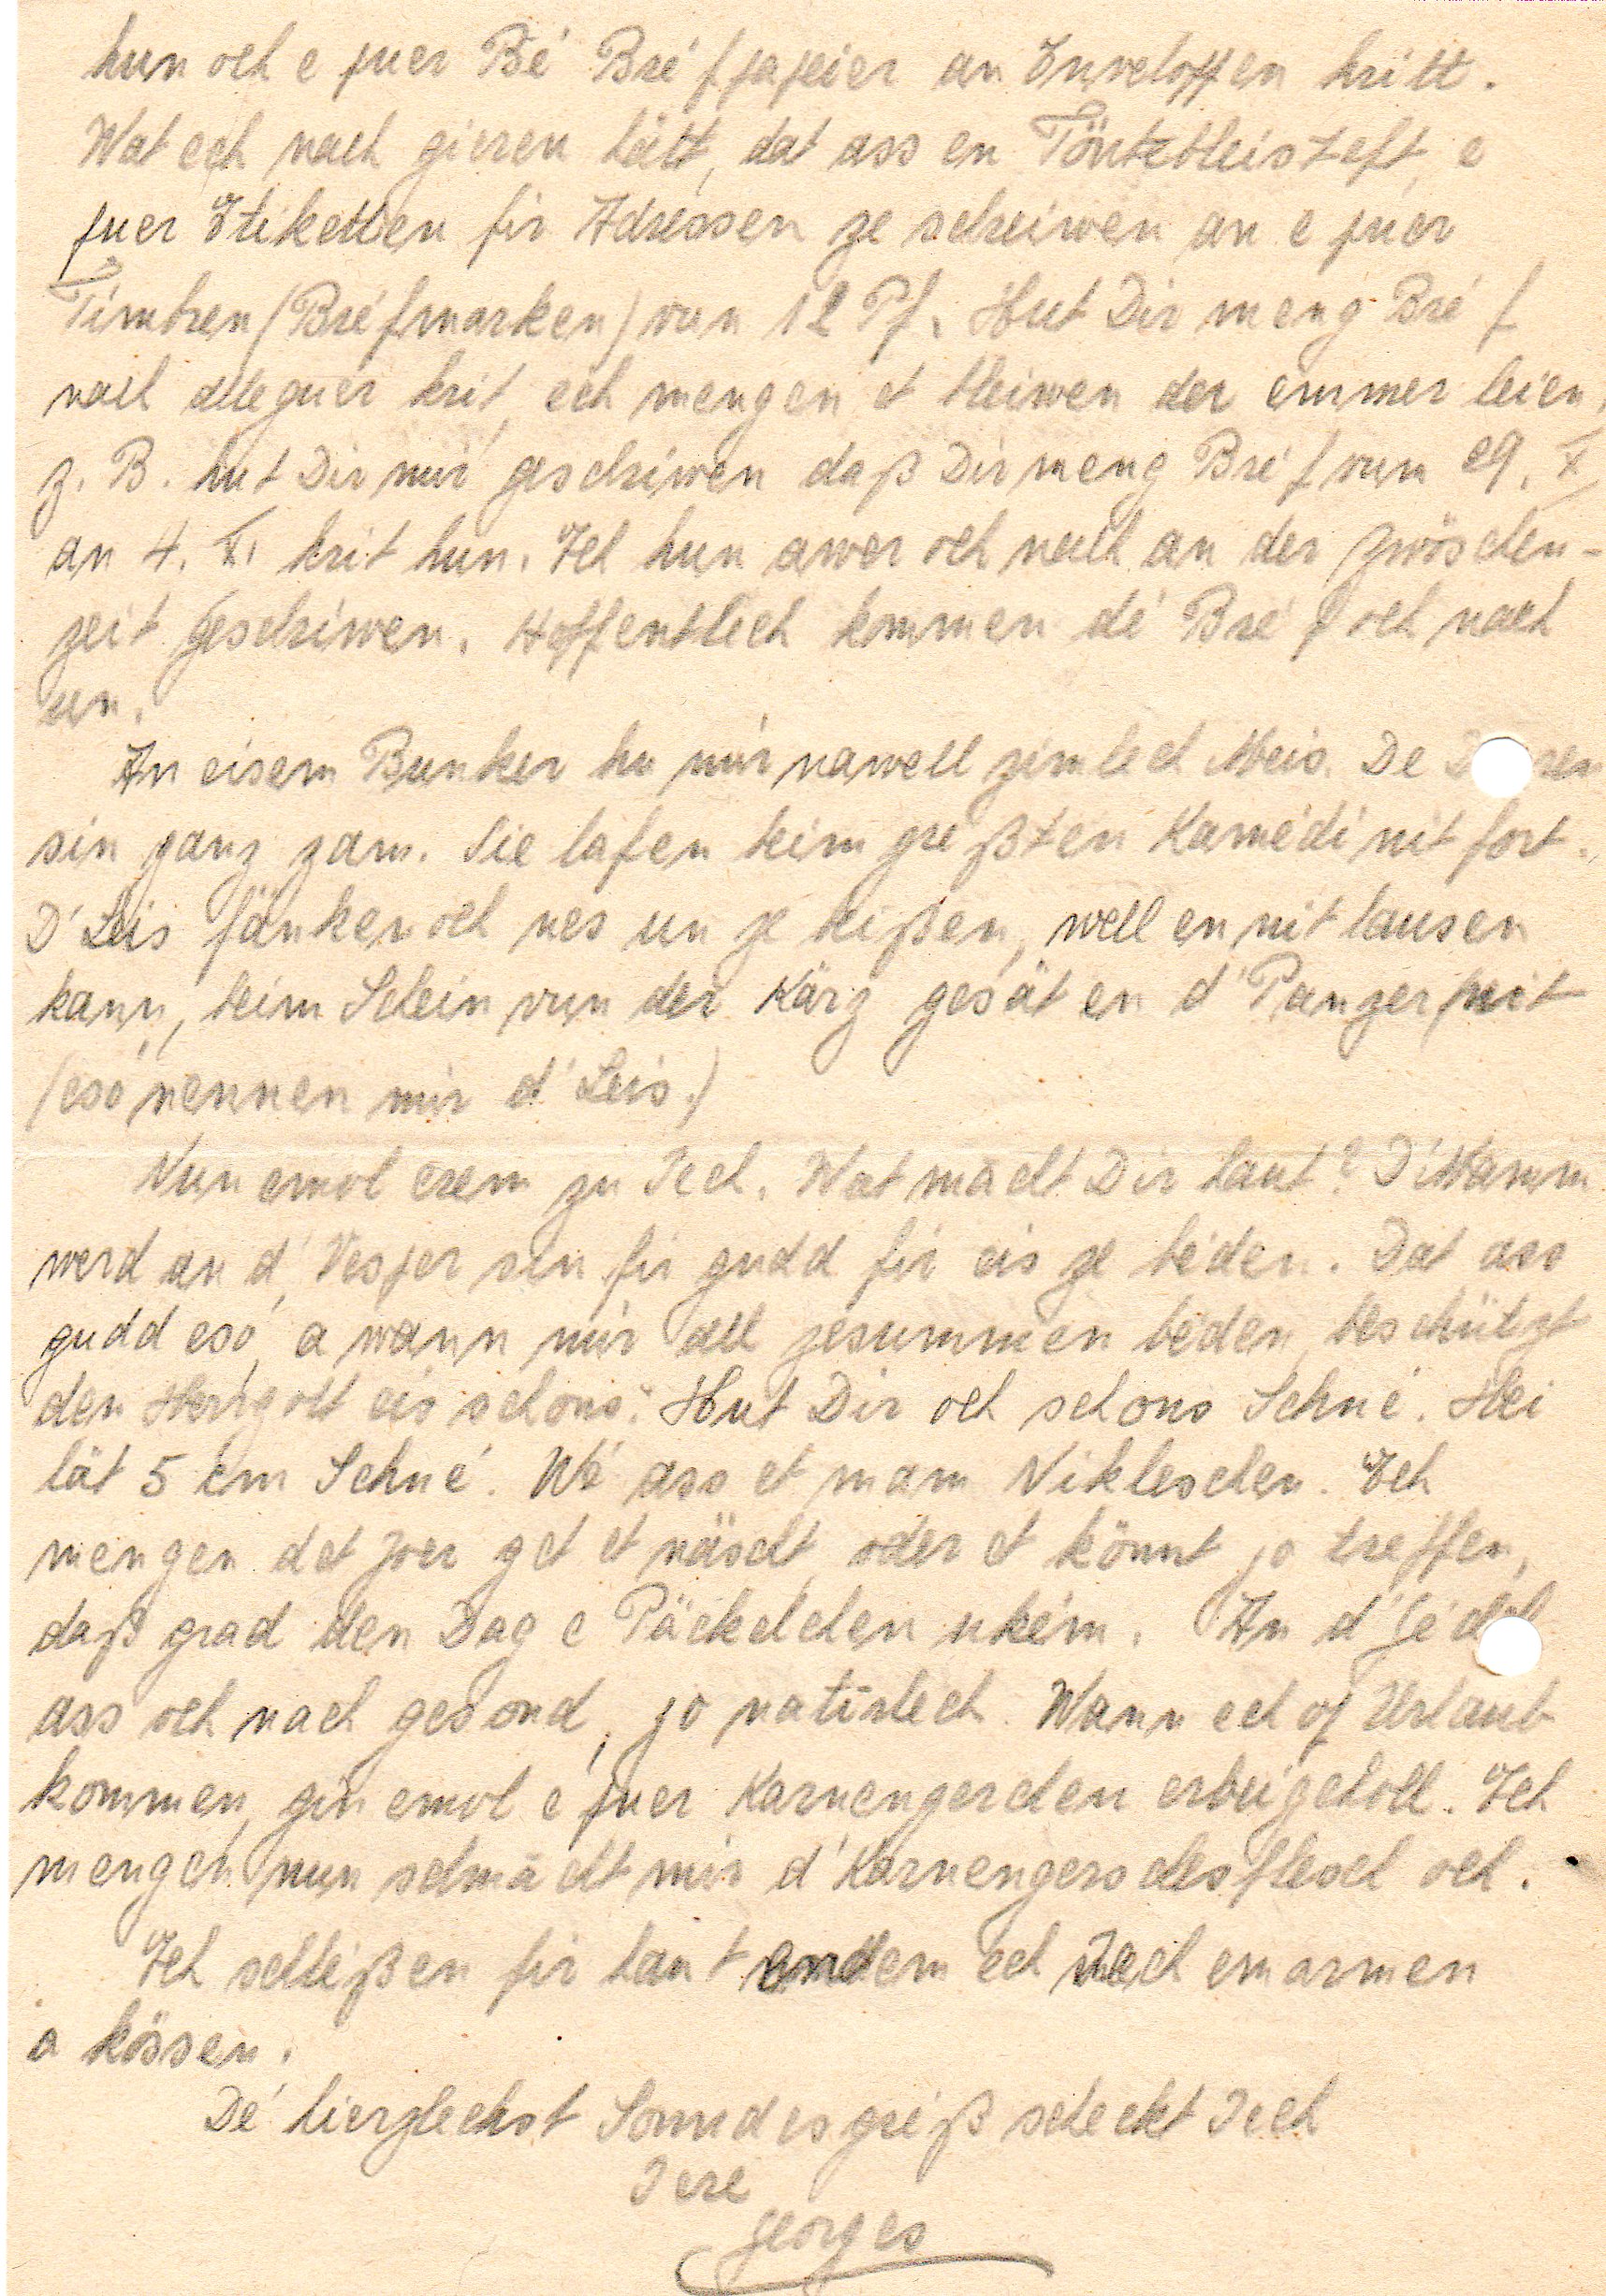 hun och e puer Bé Bréfpapeier an Enveloppen kritt.
Wat ech nach gieren hätt, dat ass en Töntebleisteft, e
puer Etiketten fir Adressen ze schreiwen an e puer
Timbren (Bréfmarken) vun 12 Pf. Hut Dir meng Bréf
nach alleguer krit, ech mengen et bleiwen der emmer leien,
z. B. hut Dir mir geschriwen daß Dir meng Bréf vum 29. X
an 4. XI krit hun. Ech hun awer och nach an der Zwöschen-
zeit geschriwen. Hoffentlech kommen dé Bréf och nach
un.
An eisem Bunker hu mir nawell zimlech Meis. De
sin ganz zam. Sie lafen beim greßten Kamédi nit fort.
D'Leis fänken och nes un ze beißen, well en nit lausen
kann, beim Schein vun der Kärz gesät en d'Panzer nit
(esó nennen mir d'Leis.)
Nun emol erem zu Iech. Wat macht Dir haut? D'Mamm
werd an d'Vesper sin fir gudd fir eis ze béden. Dat ass
gudd esó, a wann mir all zesummen béden, beschützt
den Herrgott eis schons. Hut Dir och schons Schné. Hei
lät 5 cm Schné. Wé ass et mam Nikleschen. Ech
mengen dët Joer gët et näscht, oder et könnt jo treffen,
daß grad den Dag e Päckelchen ukém. An d'
ass och nach gesond, jo natirlech. Wann ech op Urlaub
kommen, gin emol e puer Karnengercher erbeigeholl. Ech
mengen nun schmächt mir d'Karnengerschesflesch och.
Ech schléßen fir haut endem ech Iech emarmen
a kössen.
Dé hierzlechst Sonndesgréiß scheckt Iech
Iere
Georges